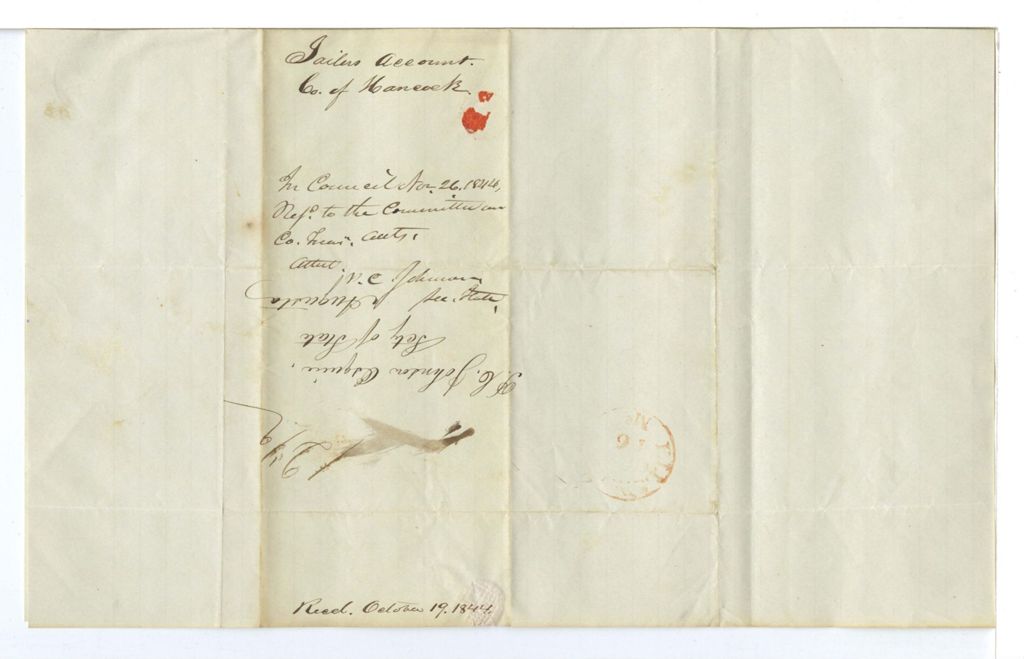 Jailers Account.
Co. of Hancock.
In Council Nov. 26. 1844,
Refd. to the Committee on
Co. Treas. Accts.
Attest,
P. C. Johnson,
Sec. State,
P. C. Johnson Esquire,
Secy of State
Augusta
Recd. October 19. 1844